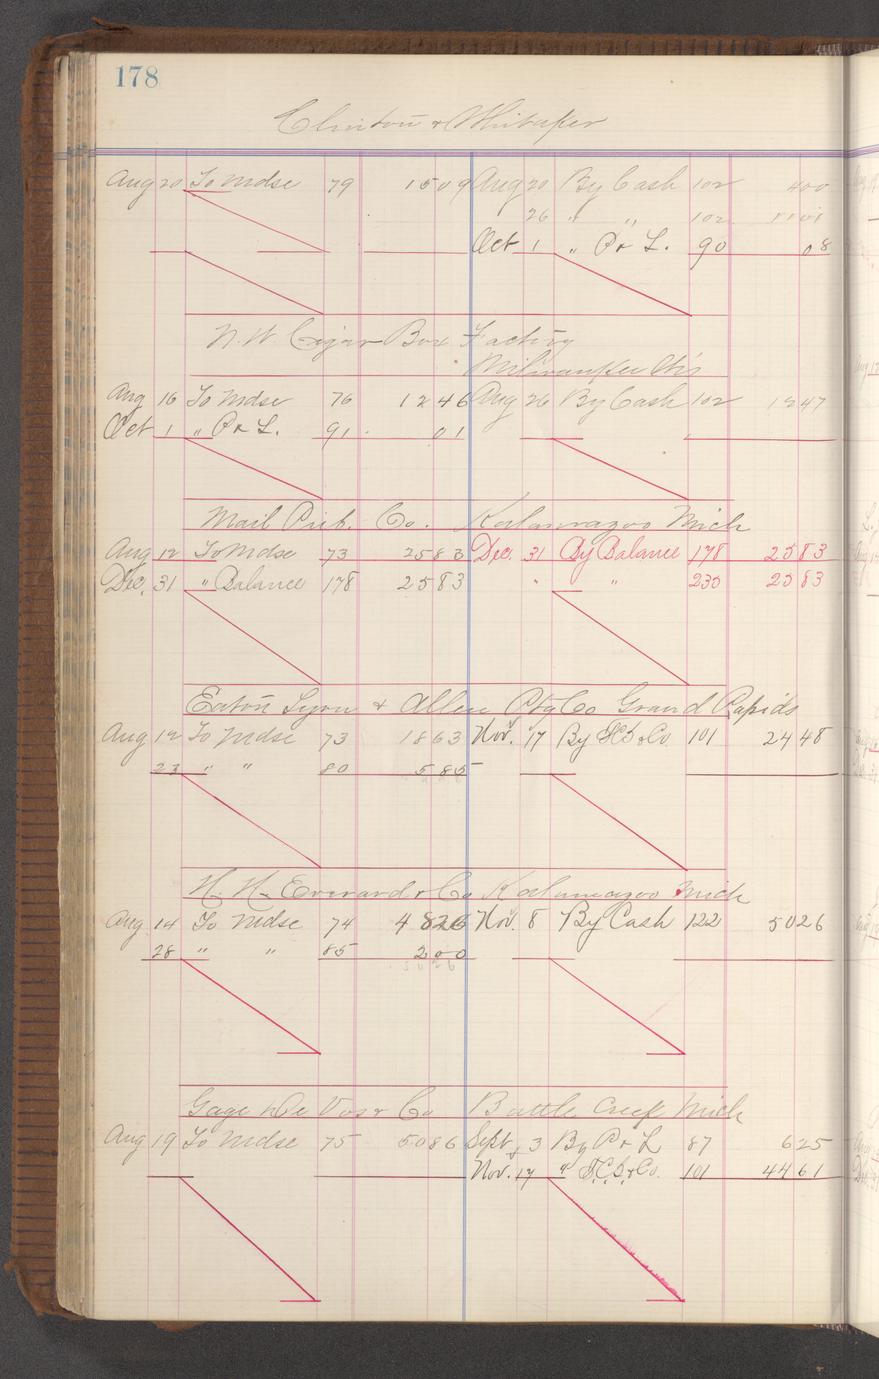 178
Clinton & Whitaker
Aug 20 To Mdse 79 1509 Aug 20 By Cash 102 400
26 " " 102 1101
Oct 1 " P & L. 90 08
N. W. Cigar Box Factory
Milwaukee Wis
Aug 16 To Mdse 76 1246 Aug 26 By Cash 102 1247
Oct 1 " P & L. 91 01
Mail Pub. Co. Kalamazoo Mich
Aug 12 To Mdse 73 2583 Dec. 31 By Balance 178 2583
Dec. 31 " Balance 178 2583 " " 235 2583
Eaton Lyon & Allen Ptg Co Grand Rapids
Aug 12 To Mdse 73 1863 Nov. 17 By & Co. 101 2448
23 " " 80 585
H. H. Everard & Co Kalamazoo Mich
Aug 14 To Mdse 74 4826 Nov. 8 By Cash 122 5026
28 " " 85 200
Gage De Vos & Co Battle Creek Mich
Aug 19 To Mdse 75 5086 Sept 3 By P & L 87 625
Nov. 17 " & Co. 101 4461